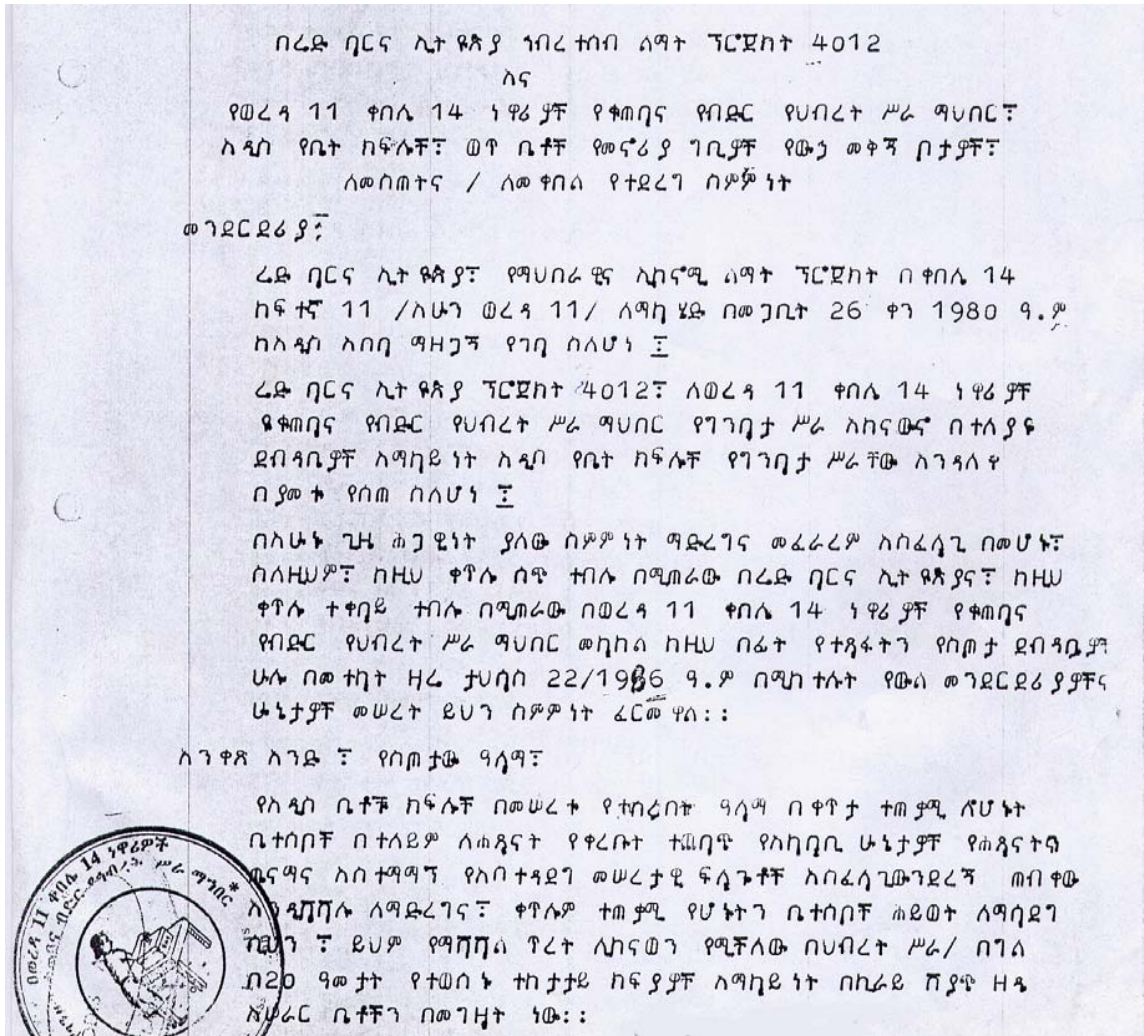 በሬድ ባርና ኢትዮጵያ ኅብረተሰብ ልማት ፕሮጀክት 4012
እና
የወረዳ 11 ቀበሌ 14 ነዋሪዎች የቁጠባና የብድር የህብረት ሥራ ማህበር፣
አዲስ የቤት ክፍሎች፣ ወጥ ቤቶች የመኖሪያ ግቢዎች የውኃ መቅጃ ቦታዎች፣
ለመስጠትና / ለመቀበል የተደረገ ስምምነት
መንደርደሪያ፤
ሬድ ባርና ኢትዮጵያ፣ የማህበራዊና ኢኮኖሚ ልማት ፕሮጀክት በቀበሌ 14
ከፍተኛ 11 /አሁን ወረዳ 11/ ለማካሄድ በመጋቢት 26 ቀን 1980 ዓ.ም
ከአዲስ አበባ ማዘጋጃ የገባ ስለሆነ ፤
ሬድ ባርና ኢትዮጵያ ፕሮጀክት 4012፣ ለወረዳ 11 ቀበሌ 14 ነዋሪዎች
የቁጠባና የብድር የህብረት ሥራ ማህበር የግንባታ ሥራ አከናውኖ በተለያዩ
ደብዳቤዎች አማካይነት አዲስ የቤት ክፍሎች የግንባታ ሥራቸው እንዳለቀ
በያመቱ የሰጠ ስለሆነ ፤
በአሁኑ ጊዜ ሕጋዊነት ያለው ስምምነት ማድረግና መፈራረም አስፈላጊ በመሆኑ፣
ስለዚህም፣ ከዚህ ቀጥሎ ሰጭ ተብሎ በሚጠራው በሬድ ባርና ኢትዮጵያና፣ ከዚህ
ቀጥሎ ተቀባይ ተብሎ በሚጠራው በወረዳ 11 ቀበሌ 14 ነዋሪዎች የቁጠባና
የብድር የህብረት ሥራ ማህበር መካከል ከዚህ በፊት የተጻፋትን የስጦታ ደብዳቤዎች
ሁሉ በመተካት ዛሬ ታህሳስ 22/1986 ዓ.ም በሚከተሉት የውል መንደርደሪያዎችና
ሁኔታዎች መሠረት ይህን ስምምነት ፈርመዋል፡፡
አንቀጽ አንድ ፣ የስጦታው ዓላማ፣
የአዲስ ቤቶቹ ክፍሎች በመሠረቱ የተሰሩበት ዓላማ በቀጥታ ተጠቃሚ ለሆኑት
ቤተሰቦች በተለይም ለሕጻናት የቀረቡት ተጨባጭ የአካባቢ ሁኔታዎች የሕጻናትን
ጤናማና አስተማማኝ የአስተዳደግ መሠረታዊ ፍላጎቶች አስፈላጊውን ደረጃ ጠብቀው
እንዲሻሻሉ ለማድረግና፣ ቀጥሎም ተጠቃሚ የሆኑትን ቤተሰቦች ሕይወት ለማሳደግ
ሲሆን ፣ ይህም የማሻሻል ጥረት ሊከናወን የሚችለው በህብረት ሥራ/ በግል
በ20 ዓመታት የተወሰኑ ተከታታይ ክፍያዎች አማካይነት በኪራይ ሽያጭ ዘዴ
አሠራር ቤቶችን በመግዛት ነው፡፡
በወረዳ 11 ቀበሌ 14 ነዋሪዎች